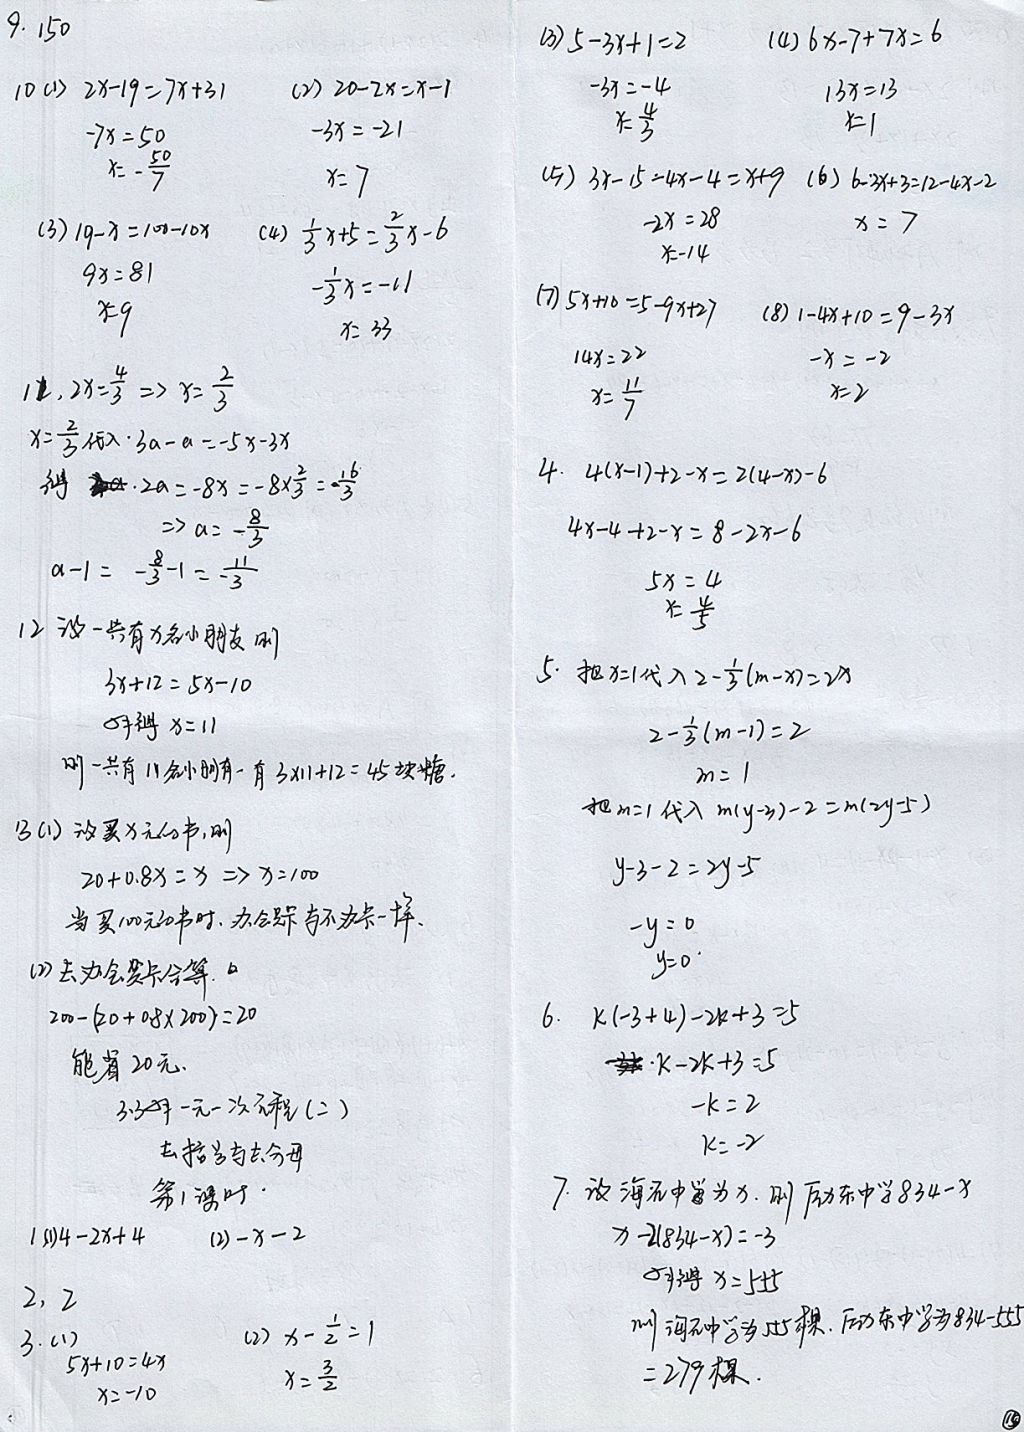 9. 150
10 (1) 2x-19=7x+31 (2) 20-2x=x-1
-7x=50 -3x=-21
x=-50/7 x=7
(3) 19-x=100-10x (4) 1/3x+5=2/3x-6
9x=81 -1/3x=-11
x=9 x=33
11, 2x=4/3 => x=2/3
x=2/3代入.3a-a=-5x-3x
得 2a=-8x=-8×2/3=-16/3
=> a=-8/3
a-1=-8/3-1=-11/3
12 设一共有x名小朋友 则
3x+12=5x-10
解得 x=11
则一共有11名小朋有 有3×11+12=45块糖.
13(1) 设买x元的书,则
20+0.8x=x => x=100
当买100元的书时、办会员卡与不办卡一样.
(2) 去办会员卡合算.
200-(20+0.8×200)=20
能省20元.
3.3解一元一次方程(二)
去括号与去分母
第1课时
1(1)4-2x+4 (2)-x-2
2, 2
3.(1) (2) x-1/2=1
5x+10=4x
x=-10 x=3/2
(3) 5-3x+1=2 (4) 6x-7+7x=6
-3x=-4 13x=13
x=4/3 x=1
(5) 3x-15-4x-4=x+9 (6) 6-3x+3=12-4x-2
-2x=28 x=7
x=-14
(7) 5x+10=5-9x+27 (8) 1-4x+10=9-3x
14x=22 -x=-2
x=11/7 x=2
4. 4(x-1)+2-x=2(4-x)-6
4x-4+2-x=8-2x-6
5x=4
x=4/5
5. 把x=1代入2-1/3(m-x)=2x
2-1/3(m-1)=2
m=1
把m=1代入 m(y-3)-2=m(2y-5)
y-3-2=2y-5
-y=0
y=0
6. k(-3+4)-2k+3=5
k-2k+3=5
-k=2
k=-2
7. 设海元中学为x.则 励东中学834-x
x-2(834-x)=-3
解得 x=555
则海元中学为555棵.励东中学为834-555
=279棵.